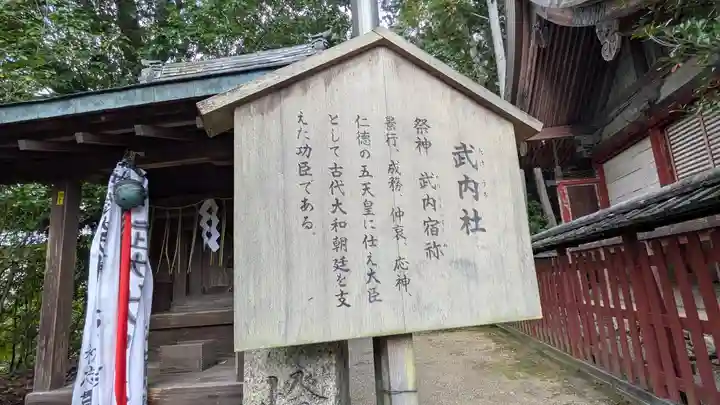 武内社
たけ うち
祭神 武内宿祢
景行、成務、仲哀、応神、
仁徳の五天皇に仕え大臣
として古代大和朝廷を支
えた功臣である。